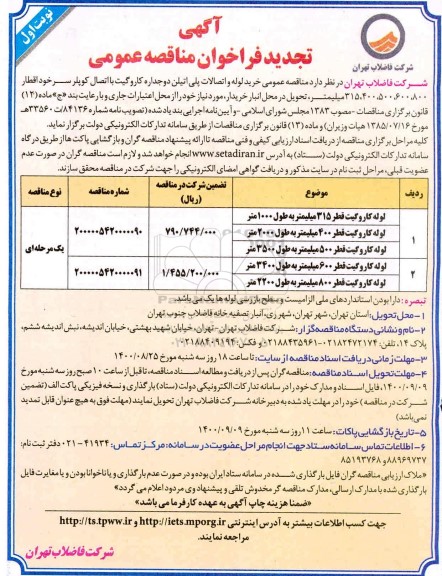 آگهی
تجدید فراخوان مناقصه عمومی
نوبت اول
شرکت فاضلاب تهران
شرکت فاضلاب تهران در نظر دارد مناقصه عمومی خرید لوله و اتصالات پلی اتیلن دوجداره کاروگیت با اتصال کوپلر سرخود اقطار
۳۱۵،۴۰۰،۵۰۰،۶۰۰،۸۰۰ میلیمتر، تحویل در محل انبار خریدار، مورد نیاز خود را از محل اعتبارات جاری و با رعایت بند «ج» ماده (۱۳)
قانون برگزاری مناقصات - مصوب ۱۳۸۳ مجلس شورای اسلامی - و آیین نامه اجرایی بند یاد شده (تصویب نامه شماره ۸۴۱۳۶/ت ۳۳۵۶۰هـ
مورخ ۱۳۸۵/۰۷/۱۶ هیات وزیران) و ماده (۱۳) قانون برگزاری مناقصات از طریق سامانه تدارکات الکترونیکی دولت برگزار نماید.
کلیه مراحل برگزاری مناقصه از دریافت اسناد ارزیابی کیفی و فنی مناقصه تا ارائه پیشنهاد مناقصه گران و بازگشایی پاکت ها از طریق درگاه
سامانه تدارکات الکترونیکی دولت (ستاد) به آدرس www.setadiran.ir انجام خواهد شد و لازم است مناقصه گران در صورت عدم
عضویت قبلی، مراحل ثبت نام در سایت مذکور و دریافت گواهی امضای الکترونیکی را جهت شرکت در مناقصه محقق سازند.
ردیف موضوع تضمین شرکت در مناقصه (ریال) شماره مناقصه نوع مناقصه
۱ لوله کاروگیت قطر ۳۱۵ میلیمتر به طول ۱۰۰۰ متر ۷۹۰/۷۴۴/۰۰۰ ۲۰۰۰۰۰۵۴۲۰۰۰۰۰۹۰ یک مرحله ای
لوله کاروگیت قطر ۴۰۰ میلیمتر به طول ۲۰۰۰ متر
لوله کاروگیت قطر ۵۰۰ میلیمتر به طول ۳۵۰۰ متر
۲ لوله کاروگیت قطر ۶۰۰ میلیمتر به طول ۳۴۰۰ متر ۱/۴۵۵/۲۰۰/۰۰۰ ۲۰۰۰۰۰۵۴۲۰۰۰۰۰۹۱
لوله کاروگیت قطر ۸۰۰ میلیمتر به طول ۲۲۰۰ متر
تبصره: دارا بودن استانداردهای ملی الزامیست و سطح بازرسی لوله ها یک می باشد.
۱- محل تحویل: استان تهران، شهر تهران، شهرری، انبار تصفیه خانه فاضلاب جنوب تهران
۲- نام و نشانی دستگاه مناقصه گزار: شرکت فاضلاب تهران - تهران، خیابان شهید بهشتی، خیابان اندیشه، نبش اندیشه ششم،
پلاک ۱۴، تلفن: ۰۲۱۸۲۴۷۲۱۷۴ و ۰۲۱۸۸۴۳۵۹۶۱ و فکس: ۰۲۱۸۸۴۰۹۱۹۴
۳- مهلت زمانی دریافت اسناد مناقصه از سایت: تا ساعت ۱۸ روز سه شنبه مورخ ۱۴۰۰/۰۸/۲۵
۴- مهلت تحویل اسناد مناقصه: مناقصه گران پس از دریافت و مطالعه اسناد مناقصه، تا قبل از ساعت ۱۰ صبح روز سه شنبه مورخ
۱۴۰۰/۰۹/۰۹، فایل اسناد و مدارک خود را در سامانه تدارکات الکترونیکی دولت (ستاد) بارگذاری و نسخه فیزیکی پاکت الف (تضمین
شرکت در مناقصه) خود را در مهلت یاد شده به دبیرخانه شرکت فاضلاب تهران تحویل نمایند (مهلت فوق به هیچ عنوان قابل تمدید
نمی باشد)
۵- تاریخ بازگشایی پاکات: ساعت ۱۱ روز سه شنبه مورخ ۱۴۰۰/۰۹/۰۹
۶- اطلاعات تماس سامانه ستاد جهت انجام مراحل عضویت در سامانه: مرکز تماس: ۴۱۹۳۴-۰۲۱ دفتر ثبت نام:
۸۸۹۶۹۷۳۷ و ۸۵۱۹۳۷۶۸
«ملاک ارزیابی مناقصه گران فایل بارگذاری شده در سامانه ستاد ایران بوده و در صورت عدم بارگذاری و یا ناخوانا بودن و یا مغایرت فایل
بارگذاری شده با مدارک ارسالی، مدارک مناقصه گر مخدوش تلقی و پیشنهاد وی مردود اعلام می گردد»
«ضمنا هزینه چاپ آگهی به عهده کارفرما می باشد»
جهت کسب اطلاعات بیشتر به آدرس اینترنتی http://iets.mporg.ir و http://ts.tpww.ir
مراجعه نمایند.
شرکت فاضلاب تهران